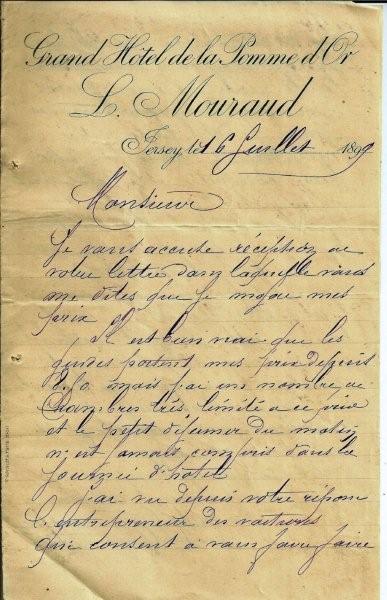 Grand Hôtel de la Pomme d'Or
L. Mouraud
Jersey, le 16 Juillet 1899
Monsieur
Je vous accuse réception de
votre lettre dans laquelle vous
me dites que je
prix
Il est bien vrai que les
guides portent mes prix depuis
mais j'ai un nombre de
Chambres très limité a ce prix
et le petit déjeuner du matin
n'est jamais compris dans la
journée d'hôtel
j'ai vu depuis votre réponse
l'entrepreneur des voitures
qui consent à vous faire faire